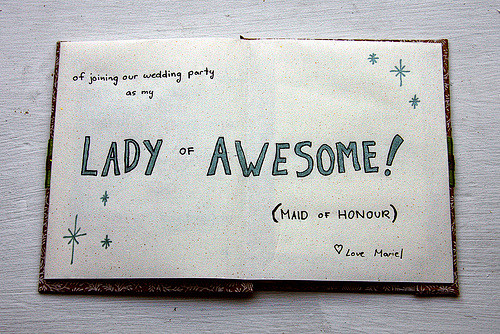 of joining our wedding party
as my
LADY OF AWESOME!
(MAID OF HONOUR)
♡ Love Mariel